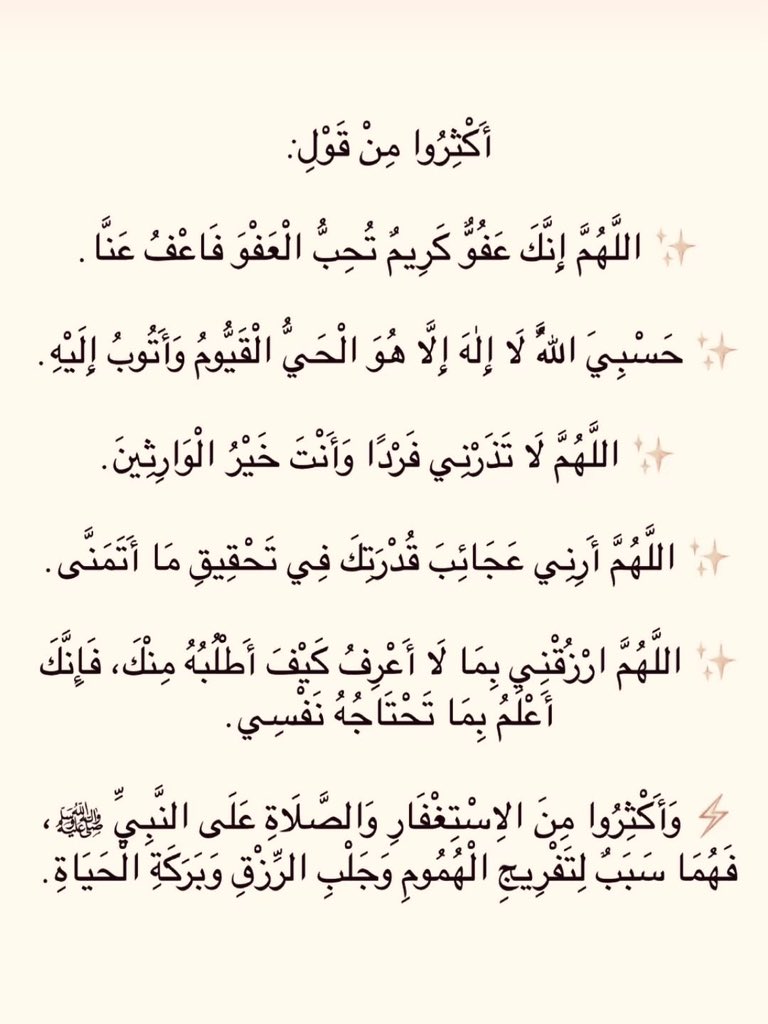 أَكْثِرُوا مِنْ قَوْلِ:
✨ اللَّهُمَّ إِنَّكَ عَفُوٌّ كَرِيمٌ تُحِبُّ الْعَفْوَ فَاعْفُ عَنَّا .
✨ حَسْبِيَ اللَّهُ لَا إِلٰهَ إِلَّا هُوَ الْحَيُّ الْقَيُّومُ وَأَتُوبُ إِلَيْهِ.
✨ اللَّهُمَّ لَا تَذَرْنِي فَرْدًا وَأَنْتَ خَيْرُ الْوَارِثِينَ.
✨ اللَّهُمَّ أَرِنِي عَجَائِبَ قُدْرَتِكَ فِي تَحْقِيقِ مَا أَتَمَنَّى.
✨ اللَّهُمَّ ارْزُقْنِي بِمَا لَا أَعْرِفُ كَيْفَ أَطْلُبُهُ مِنْكَ، فَإِنَّكَ
أَعْلَمُ بِمَا تَحْتَاجُهُ نَفْسِي.
⚡ وَأَكْثِرُوا مِنَ الِاسْتِغْفَارِ وَالصَّلَاةِ عَلَى النَّبِيِّ ﷺ،
فَهُمَا سَبَبٌ لِتَفْرِيجِ الْهُمُومِ وَجَلْبِ الرِّزْقِ وَبَرَكَةِ الْحَيَاةِ.